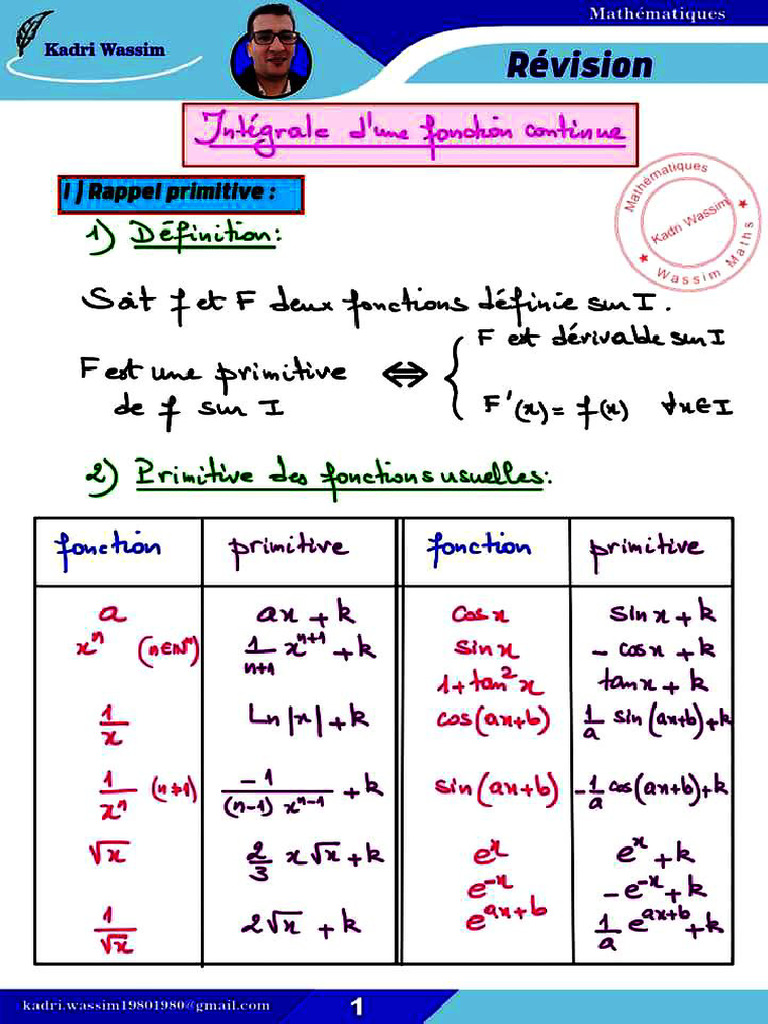 Mathématiques
Kadri Wassim
Révision
Intégrale d'une fonction continue
I ) Rappel primitive :
Mathématiques
Kadri Wassim
Wassim Maths
1) Définition:
Soit f et F deux fonctions définie sur I.
F est une primitive de f sur I ⇔ { F est dérivable sur I
F'(x) = f(x) ∀x∈I
2) Primitive des fonctions usuelles:
fonction | primitive | fonction | primitive
a | ax + k | cos x | sin x + k
x^n (n∈ℕ*) | 1/(n+1) x^(n+1) + k | sin x | - cos x + k
1 + tan² x | tan x + k
1/x | Ln|x| + k | cos(ax+b) | 1/a sin(ax+b) + k
1/x^n (n≠1) | -1/((n-1) x^(n-1)) + k | sin(ax+b) | -1/a cos(ax+b) + k
√x | 2/3 x√x + k | e^x | e^x + k
e^-x | -e^-x + k
1/√x | 2√x + k | e^(ax+b) | 1/a e^(ax+b) + k
kadri.wassim19801980@gmail.com
1